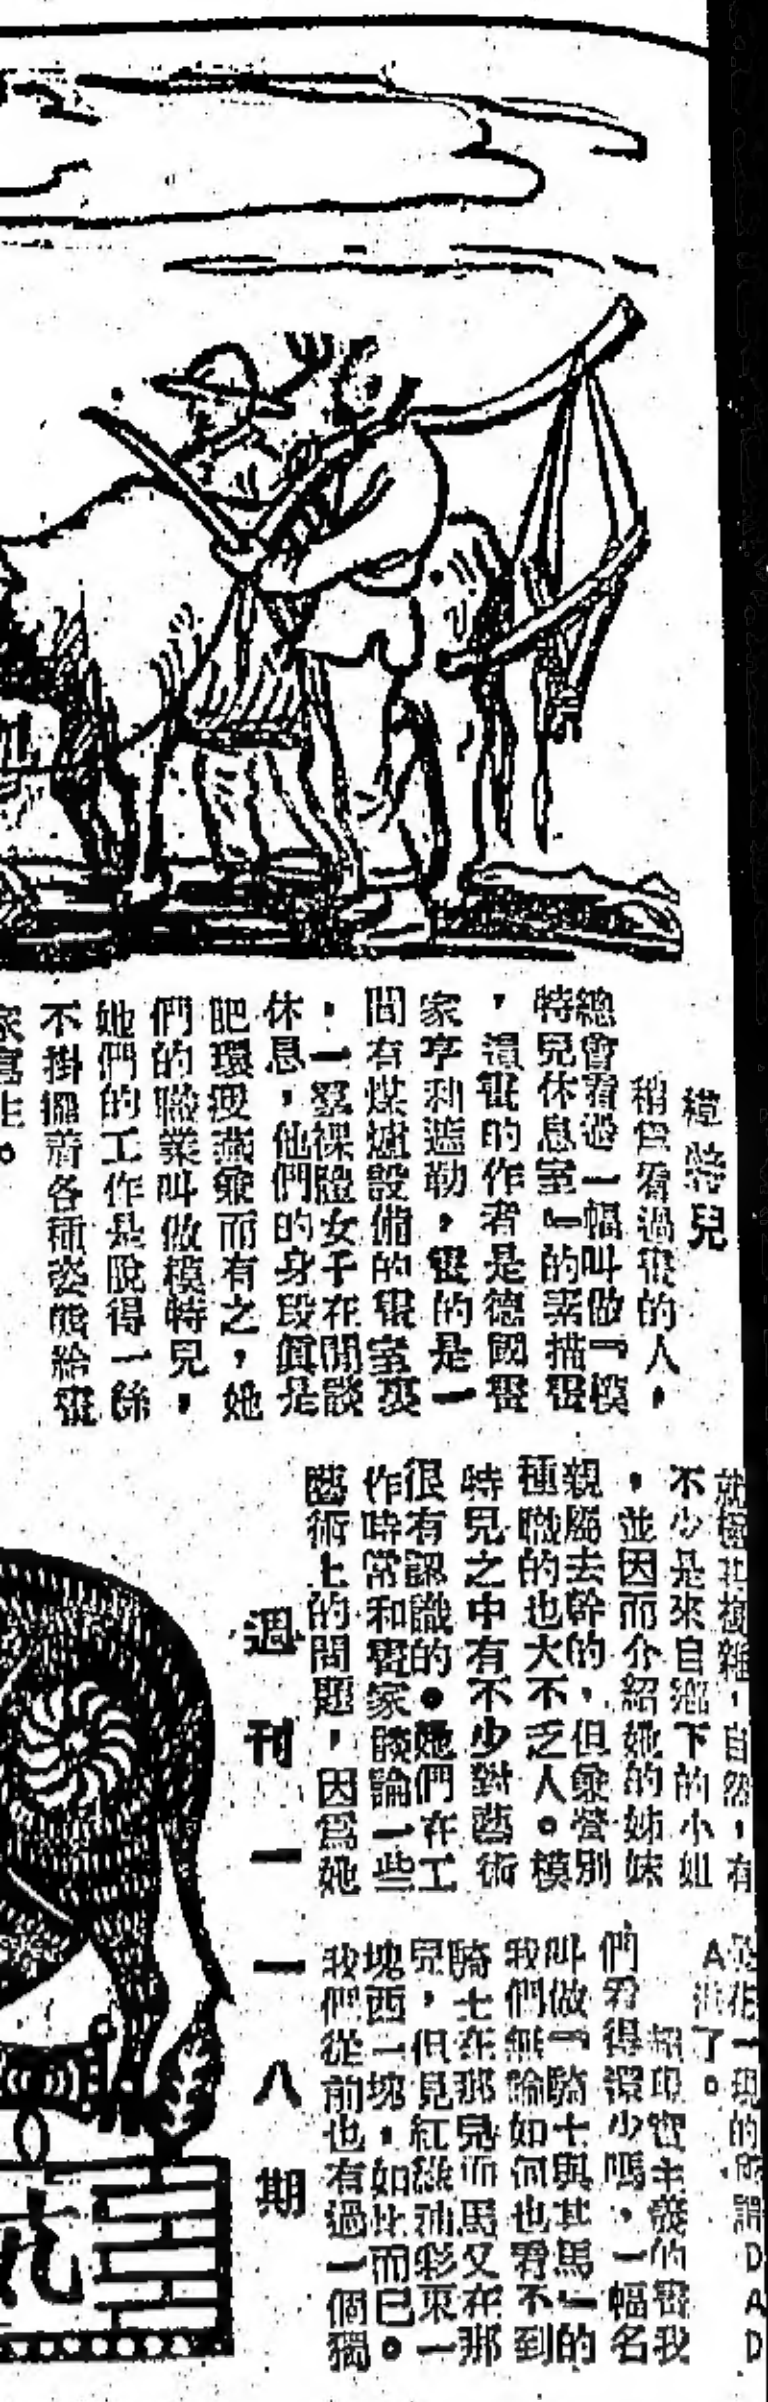 模特兒
稍為看過畫的人，
總會看過一幅叫做『模
特兒休息室』的素描畫
，這畫的作者是德國畫
家亨利遮勒，畫的是一
間有煤爐設備的畫室裏
，一羣裸體女子在閒談
休息，他們的身段眞是
肥環瘦燕兼而有之，她
們的職業叫做模特兒，
她們的工作是脫得一絲
不掛擺着各種姿態給畫
家寫生。
就極其複雜，自然，有
不少是來自鄉下的小姐
，並因而介紹她的姊妹
親屬去幹的，但兼營別
種職的也大不乏人。模
特兒之中有不少對藝術
很有認識的。她們在工
作時常和畫家談論一些
藝術上的問題，因爲她
一現的所謂DAD
A派了。
超現實主義的畫我
們看得還少嗎，一幅名
叫做『騎士與其馬』的
我們無論如何也看不到
騎士在那兒而馬又在那
兒，但見紅綠油彩東一
塊西一塊，如此而已。
我們從前也有過一個獨
週刊一一八期